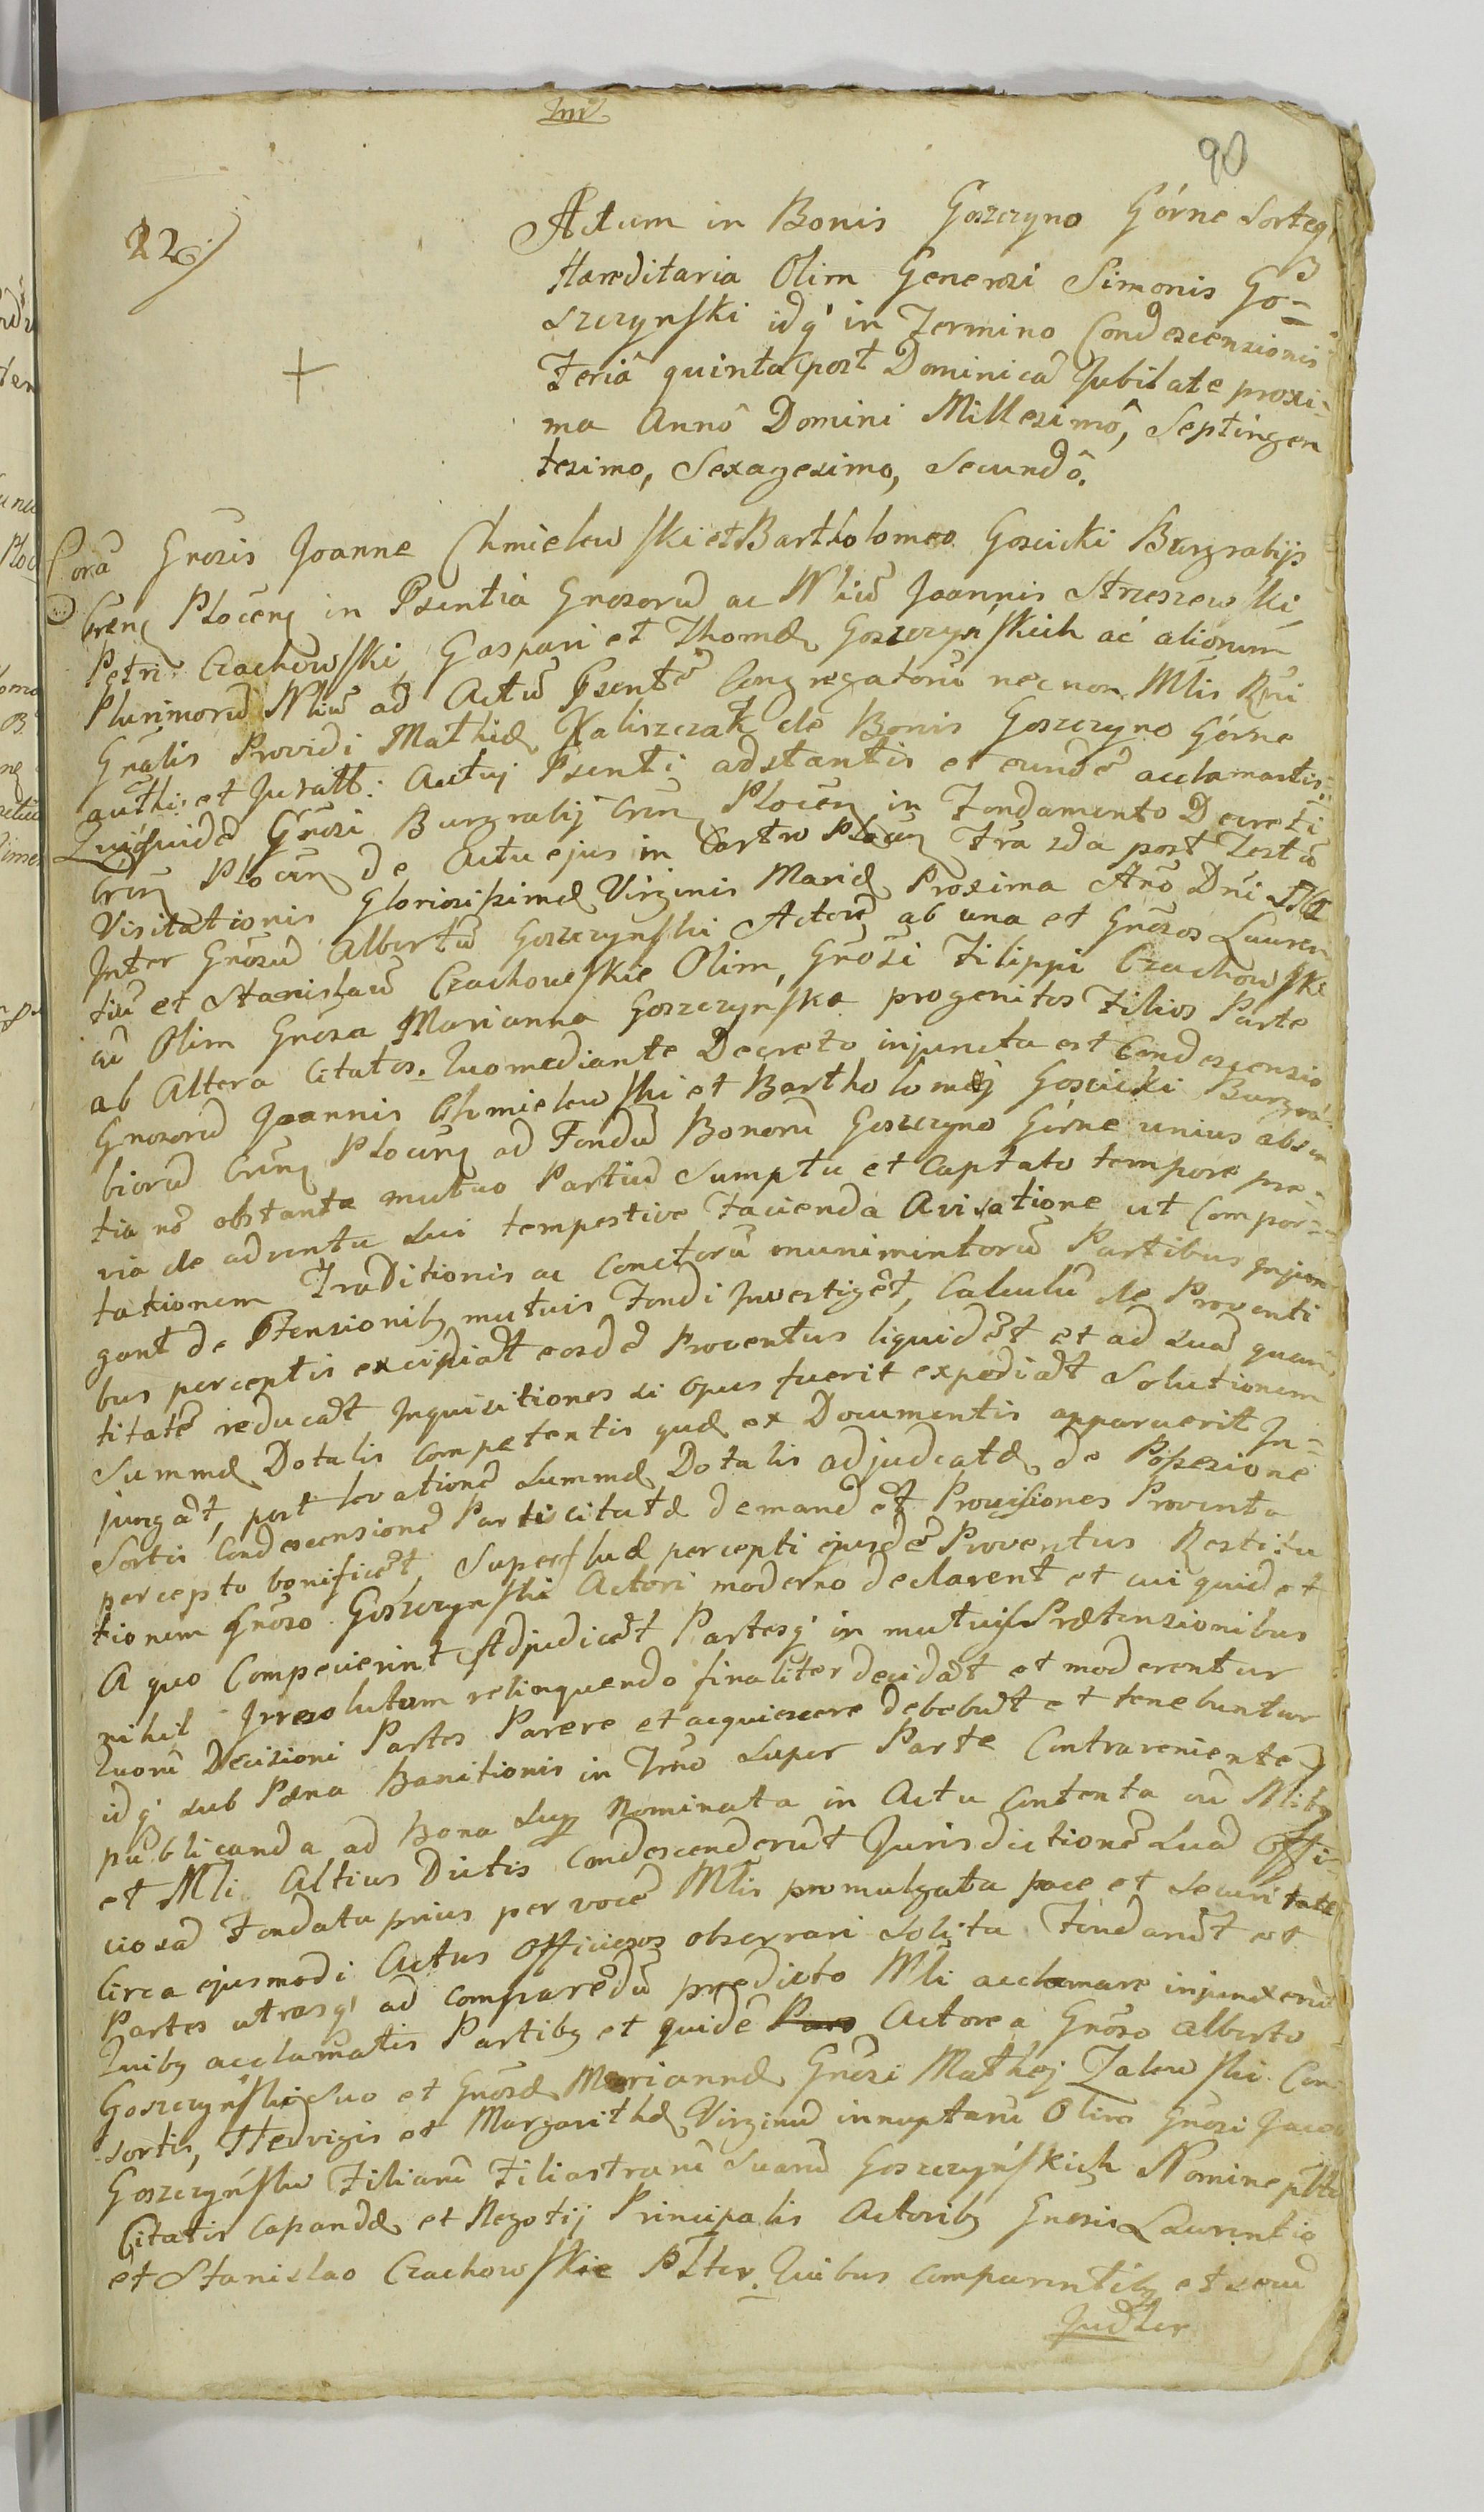 90
22
Actum in Bonis Goszczyno Górne Sorteq
Hæreditaria Olim Generosi Simonis Go=
szczynski idq in Termino Condescensionis
Feriâ quinta post Dominicā Jubilate proxi=
ma Annô Domini Millesimô, Septingen
tesimo, Sexagesimo, Secundô.
Corā Gnosis Joanne Chmielewski et Bartholomeo Goscicki Burgrabijs
Płoceñ in Psentia Gnosorū ac Nliū Joannis Strzeszewski
Petri Czachowski, Gaspari et Thomæ Goszczyńskich ac aliorum
Plurimorū Nliū ad Actū Psentē Congregatorū nec non Mlis Rni
Gnalis Providi Mathiæ Kaliszczak de Bonis Goszczyno Górne
auth: et Juratt: Actuj Psenti adstantis et eundē acclamantis:
Quiquidē Gñosi Burgrabij Płoceñ in Fondamento Decreti
Płoceñ de Actu ejus in Castro Płoceñ Fria 2da post Festū
Visitationis Gloriosissimæ Virginis Mariæ Proxima Año Dñi
Inter Gñosū Albertū Goszczynski Actorē ab una et Gñosos Lauren
tiū et Stanislaū Czachowskie Olim Gnosi Filippi Czachowski
cū Olim Gnosa Marianna Goszczyńska progenitos Filios Parte
ab Altera Citatos. Quo mediante Decreto injuncta est Condescensio
Gnosorū Joannis Chmielewski et Bartholomej Goscicki Burgra
biorū Płoceñ ad Fondū Bonorū Goszczyno Górne unius absen
tia nō obstante mutuo Partiū Sumptu et Captato tempore præ=
via de adventu sui tempestive facienda Avisatione ut Compor=
tationem Traditionis ac Conctorū munimentorū Partibus injun
gant de Ptensionibq mutuis Fondi Investigēt, Calculū de Proventi
bus perceptis excipiāt eosdē Proventus liquidēt et ad suā quan
titatē reducāt Inquisitiones si opus fuerit expediāt Solutionem
Summæ Dotalis Competentis quæ ex Documentis apparuerit In=
jungāt, post levationē Summæ Dotalis adjudicatæ de Possesione
Sortis Condescensionē Parti citatæ demandēt Provisiones Proventu
percepto bonificēt, Superfluæ percepti ejusdē Proventus Restitu
tionem Gnoso Goszczynski Actori moderno declarent et cui quid et
A quo Competierint Adjudicēt Partesq in mutuis Prætensionibus
nihil Irresolutum relinquendo finaliter decidāt et moderentur
Quorū Decisioni Partes Parere et acquiescere debebūt et tenebuntur
idq sub Pæna Banitionis in Trno super Parte Contraveniente
publicanda ad Bona Sup Nominata in Actu Contenta cū Nlibq
et Mli Altius Dictis Condescenderūt Jurisdictionē suā Offi=
ciosā Fondatu prius per vocē Mlis promulgata pace et securitate
Circa ejusmodi Actus Officiosos observari solita Fondarūt et
Partes utrasq ad comparēdū prædicto Mli acclamare injunxerū
Quibq acclamatis Partibq et quidē Actorea Gnoso Alberto
Goszczyński suo et Gnosæ Mariannæ Gnosi Mathej Zalewski Con
sortis, Hedvigis et Margarithæ Virginū innuptarū Olim Gnosi Jaco
Goszczyńsku Filiarū Filiastrarū suarū Goszczyńskich Nomine
Citatis Capandæ et Negotij Principalis Actoribq Gnosis Laurentio
et Stanislao Czachowskie Quibus Comparentibq et secū
Judlter